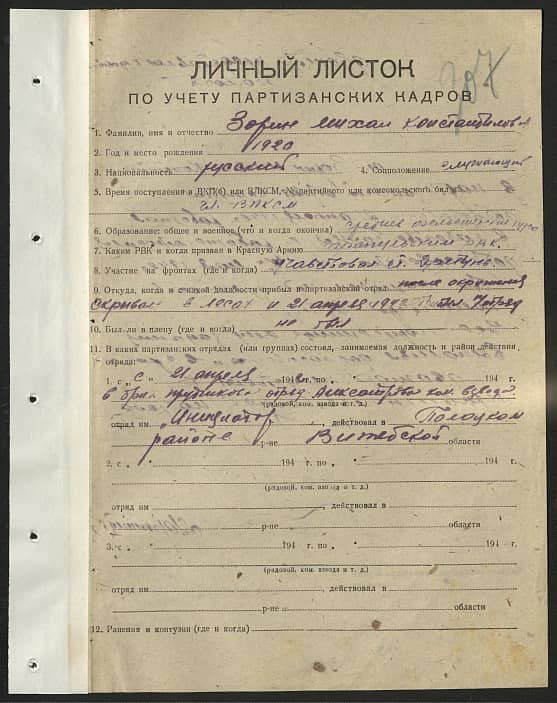 ЛИЧНЫЙ ЛИСТОК
ПО УЧЕТУ ПАРТИЗАНСКИХ КАДРОВ
1. Фамилия, имя и отчество Зорин Михаил Константинович
2. Год и место рождения 1920
3. Национальность русский 4. Соцположение служащий
5. Время поступления в ВКП(б) или ВЛКСМ, № партийного или комсомольского бил.
чл. ВЛКСМ
6. Образование: общее и военное (что и когда окончил) среднее
7. Каким РВК и когда призван в Красную Армию
8. Участие на фронтах (где и когда)
9. Откуда, когда и с какой должности прибыл в партизанский отряд после окружения
в лесах и 21 апреля 1942 отряд
10. Был-ли в плену (где и когда) не был
11. В каких партизанских отрядах (или группах) состоял, занимаемая должность и район действия
отряда:
1. с „ с 21 апреля 194 г. по „ 194 г.
в отряд ком. взвода
(рядовой, ком. взвода и т. д.)
отряд им „Инициатор“ , действовал в Полоцком
районе р-не Витебской области
2. с „ 194 г. по „ 194 г.
(рядовой, ком. взвода и т. д.)
отряд им , действовал в
р-не области
3. с „ 194 г. по „ 194 г.
(рядовой, ком. взвода и т. д.)
отряд им , действовал в
р-не области
12. Ранения и контузии (где и когда)